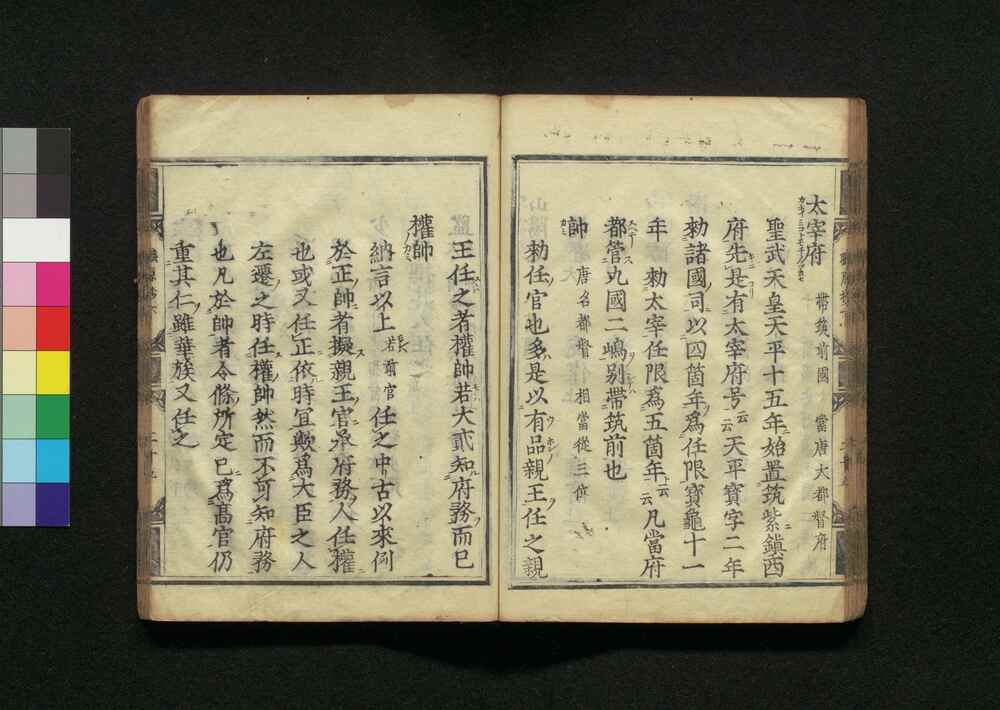 太宰府 帶筑前國 當唐大都督府
聖武天皇天平十五年始置筑紫鎮西
府先是有太宰府号云云天平寶字二年
勅諸國司以四箇年爲任限寶龜十一
年 勅太宰任限爲五箇年云云凡當府
都管九國二嶋別帶筑前也
帥 唐名都督 相當從三位
勅任官也多是以有品親王任之親
王任之者權帥若大貳知府務而已
權帥
納言以上若前官任之中古以來例
於正帥者擬親王官承府務人任權
也或又任正依時冝歟爲大臣之人
左遷之時任權帥然而不可知府務
也凡於帥者令條所定已爲髙官仍
重其仁雖華族又任之